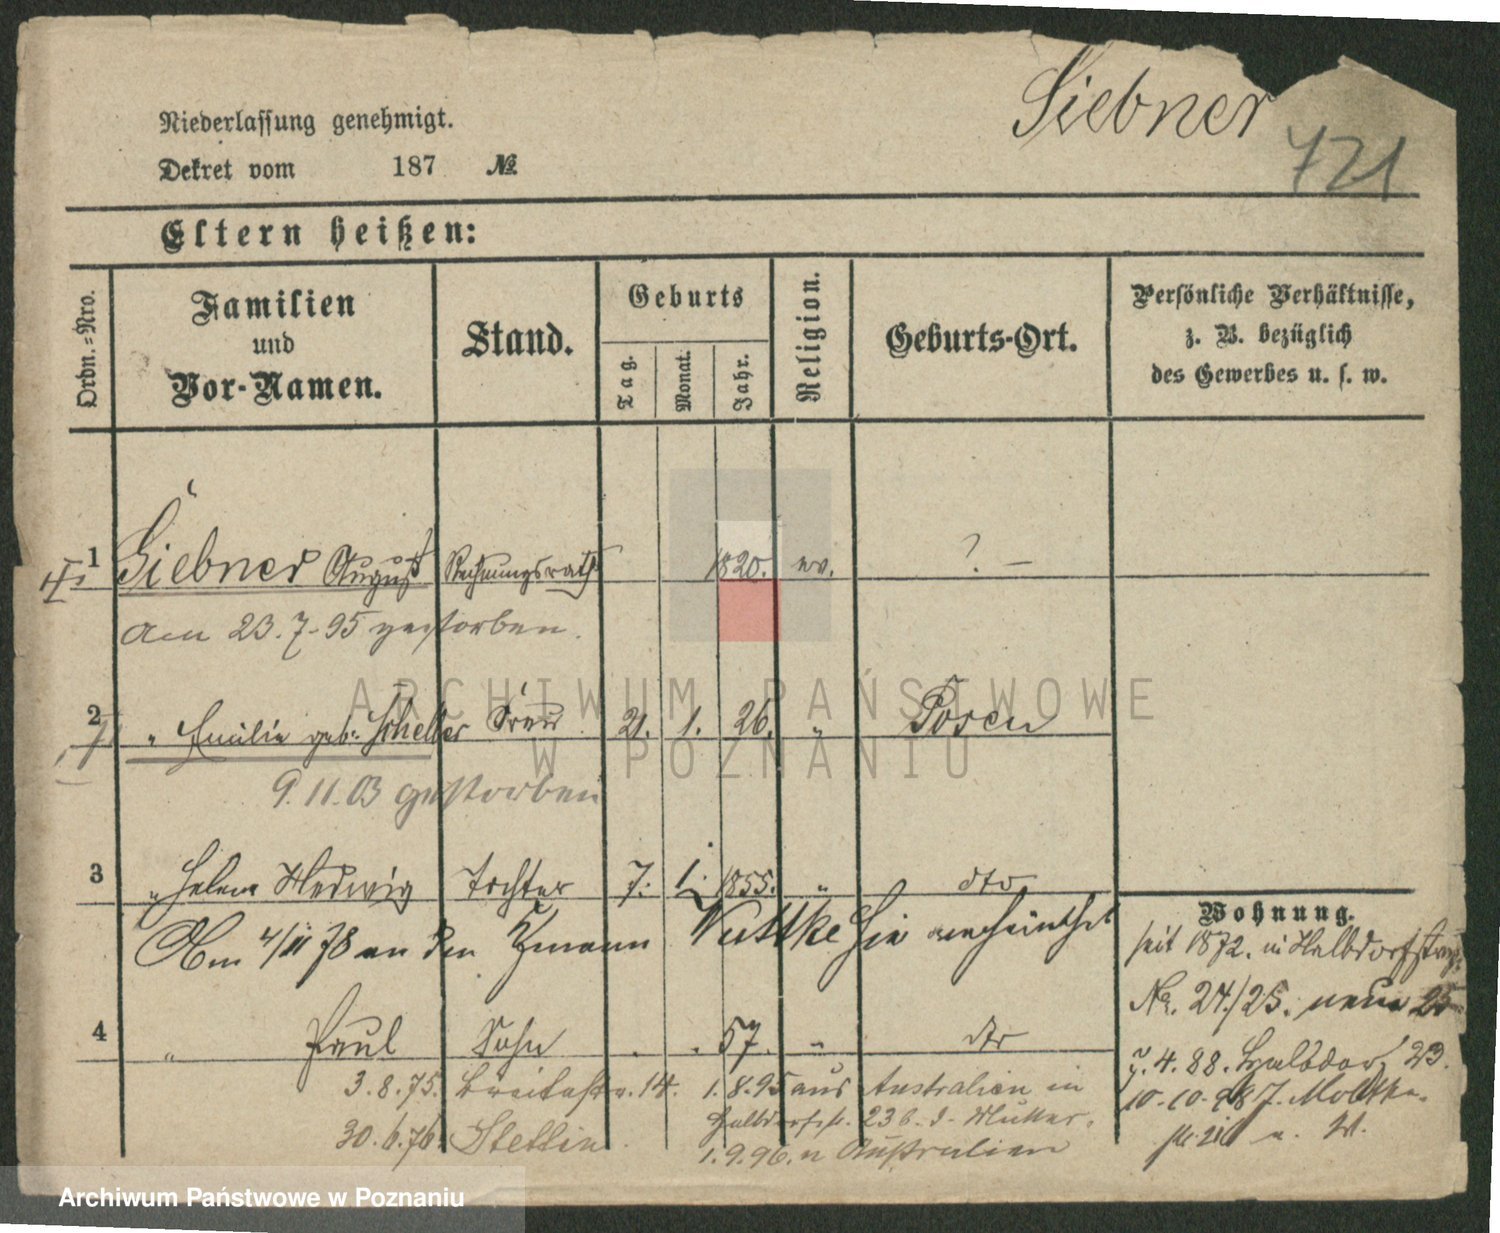 Siebner
721
Niederlassung genehmigt.
Dekret vom 187 №
Eltern heißen:
Ordn.=Nro. Familien und Vor-Namen. Stand. Geburts Tag. Monat. Jahr. Religion. Geburts-Ort. Persönliche Verhältnisse, z. B. bezüglich des Gewerbes u. s. w.
1 Siebner August Rechnungsrath 1820. ev. ? –
am 23.7.95 gestorben.
2 " Emilie geb. Scheller Frau 21. 1. 26. " Posen
9.11.03 gestorben
3 " Helene Hedwig Tochter 7. 1. 1855. " dto
Am 4/11 78 an den Wuttke hie verheirathet
4 " Paul Sohn . . 57. " dto
3.8.75. Breitestr. 14. 1.8.95 aus Australien in
Halbdorfstr. 23 b. d. Mutter.
30.6.76. Stettin. 1.9.96. n Australien
Wohnung.
seit 1872. in Halbdorfstraße
No. 24./25. neue 25
4.88. Halbdorf 23.
10.10.98 Moltke-
ARCHIWUM PAŃSTWOWE
W POZNANIU
Archiwum Państwowe w Poznaniu